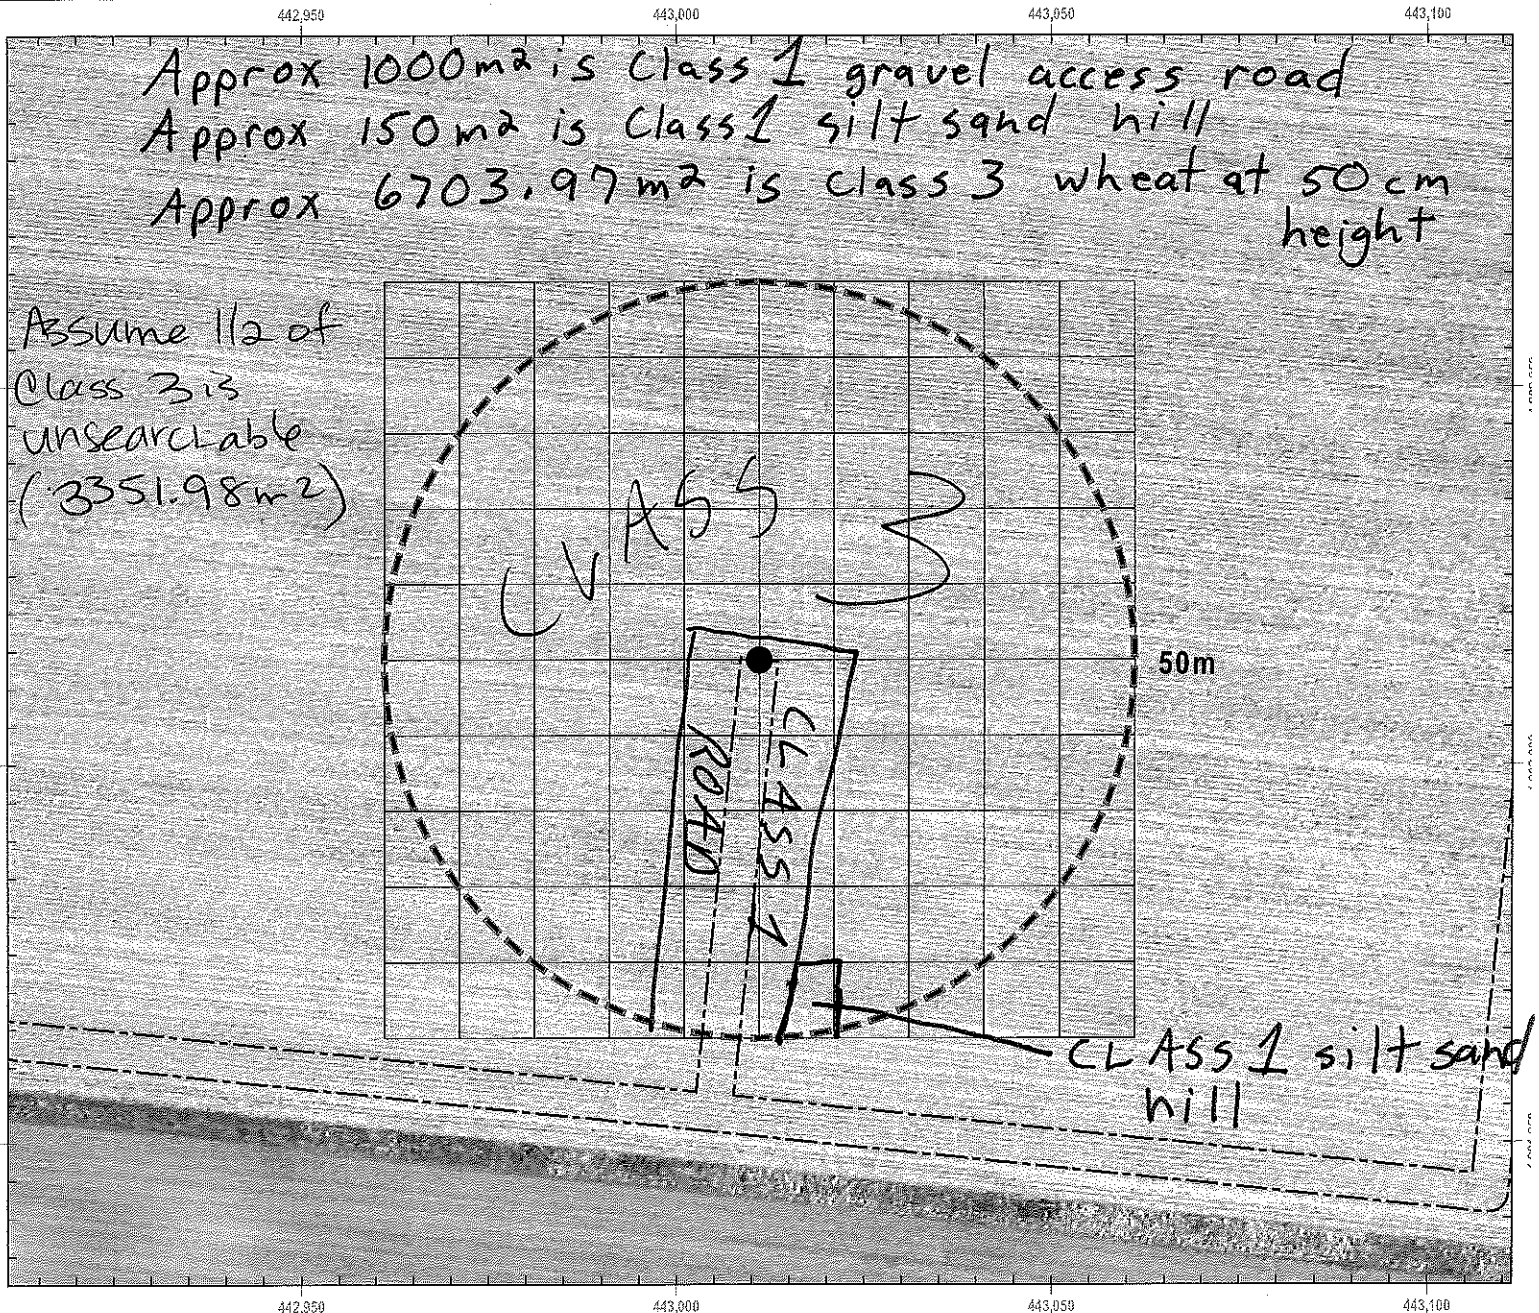 442,950 443,000 443,050 443,100
Approx 1000m² is Class 1 gravel access road
Approx 150m² is Class 1 silt sand hill
Approx 6703.97m² is class 3 wheat at 50cm
height
Assume 1/2 of
Class 3 is
unsearchable
(3351.98m2)
CLASS 3
50m
CLASS 1
ROAD
CLASS 1 silt sand
hill
442,950 443,000 443,050 443,100